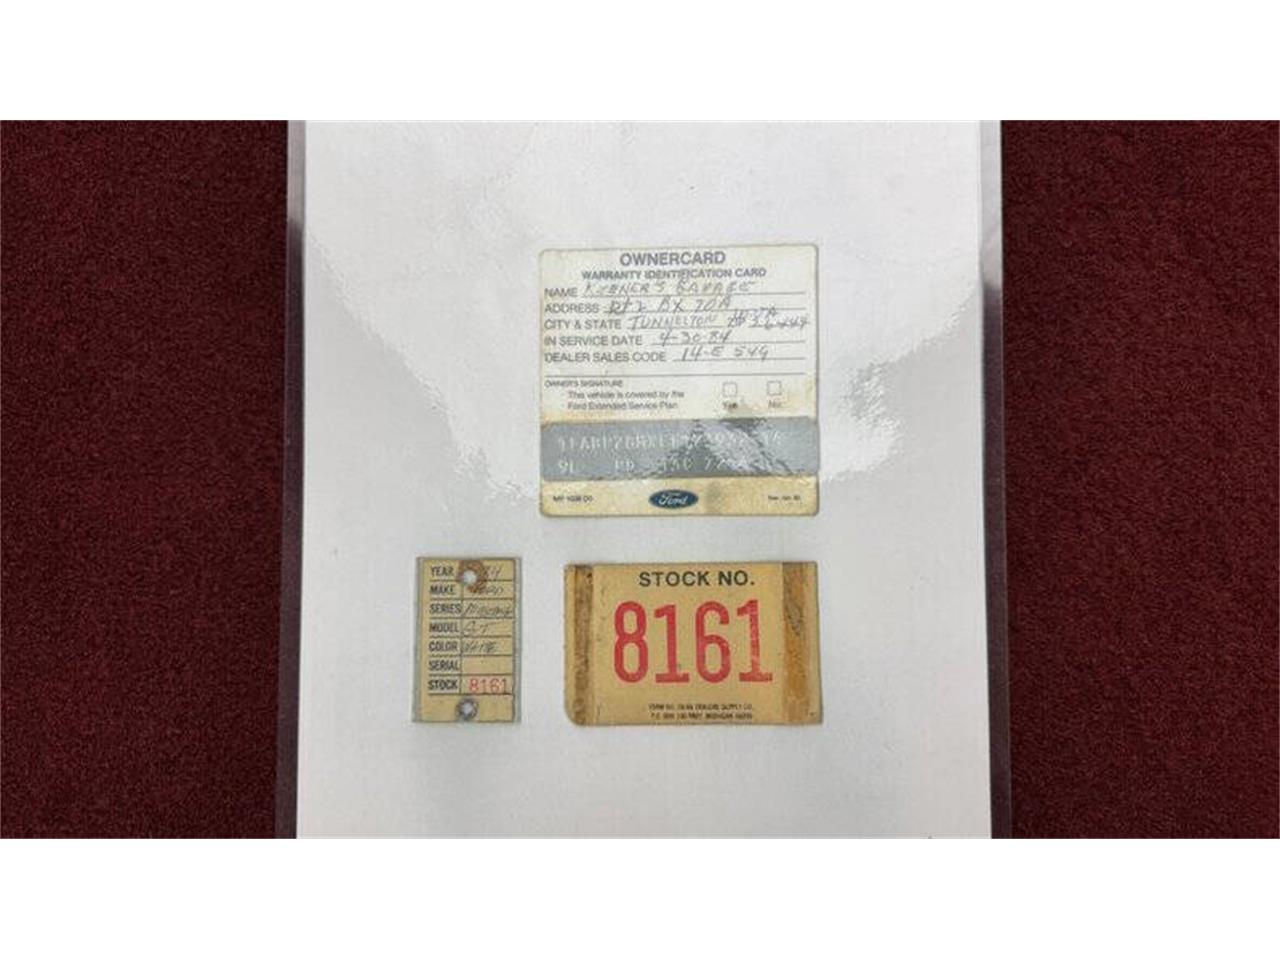 OWNERCARD
WARRANTY IDENTIFICATION CARD
NAME GARAGE
ADDRESS Rt 2 BX 70A
CITY & STATE TUNNELTON W.VA
26444
IN SERVICE DATE 4-30-84
DEALER SALES CODE 14-E 549
OWNER'S SIGNATURE
This vehicle is covered by the
Ford Extended Service Plan. Yes No
Ford
YEAR 84
MAKE FORD
SERIES MUSTANG
MODEL GT
COLOR WHITE
SERIAL
STOCK 8161
STOCK NO.
8161
DEALERS SUPPLY CO.
MICHIGAN